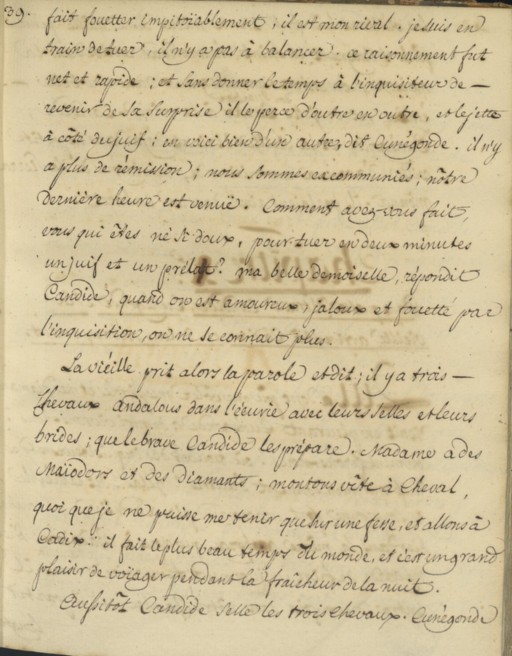 39.
fait fouetter impitoiablement, il est mon rival. je suis en
train de tuer, il n'y a pas à balancer. ce raisonnement fut
net et rapide; et sans donner le temps à l'inquisiteur de —
revenir de sa surprise il le perce d'outre en outre, et le jette
à côté du juif: en voici bien d'un autre, dit Cunégonde. il n'y
a plus de rémission; nous sommes excommuniés; nôtre
derniére heure est venuë. Comment avez-vous fait,
vous qui êtes né si doux, pour tuer en deux minutes
un juif et un prélat? ma belle demoiselle, répondit
Candide, quand on est amoureux, jaloux et fouetté par
l'inquisition, on ne se connait plus.
La vieille prit alors la parole et dit; il y a trois —
Chevaux andalous dans l'écurie avec leurs selles et leurs
brides; que le brave Candide les prépare. Madame a des
Maiodors et des diamants; montons vite à Cheval,
quoi que je ne puisse me tenir que sur une fesse, et allons à
Cadix. il fait le plus beau temps du monde, et c'est un grand
plaisir de voiager pendant la fraîcheur de la nuit.
Aussitôt Candide selle les trois chevaux. Cunégonde